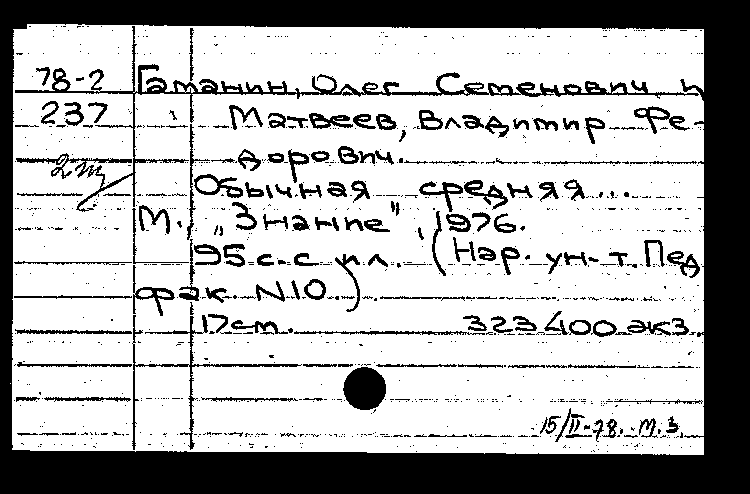 78-2 Гаманин, Олег Семенович и
237 Матвеев, Владимир Фе-
дорович.
2 т
Обычная средняя...
М., „Знание", 1976.
95 с. с ил. (Нар. ун-т. Пед
фак. N10.)
17 см. 323400 экз.
15/II-78. М.З.